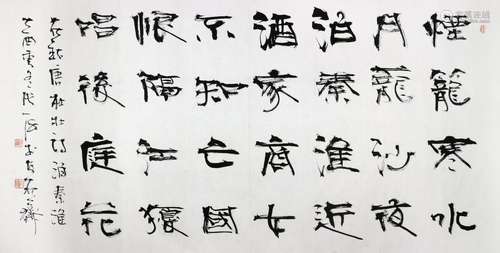 煙籠寒水
月籠沙夜
泊秦淮近
酒家商女
不知亡國
恨隔江猶
唱後庭花
唐杜牧詩泊秦淮
乙酉